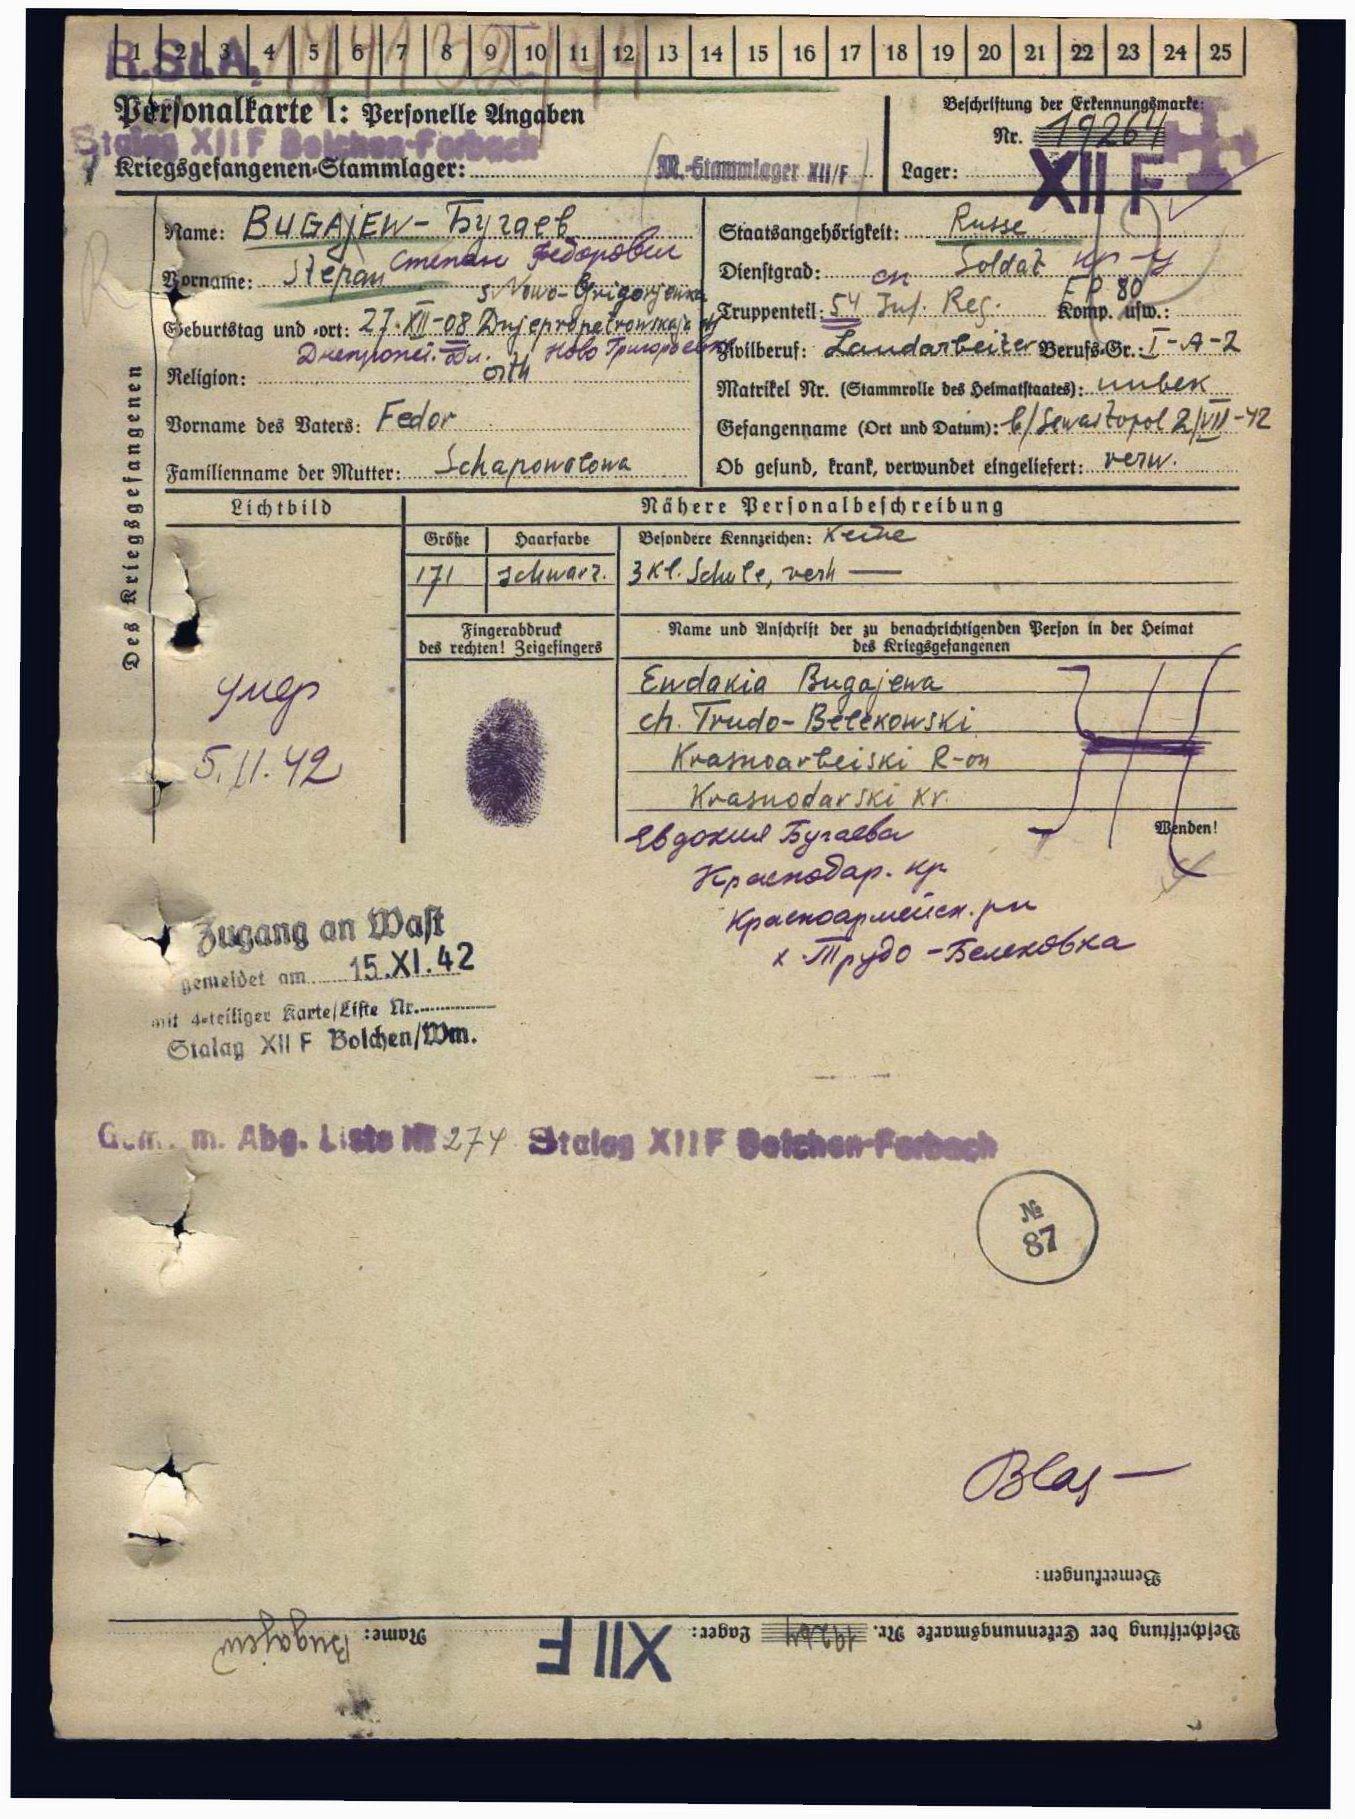 1 2 3 4 5 6 7 8 9 10 11 12 13 14 15 16 17 18 19 20 21 22 23 24 25
R.St.A.
Personalkarte I: Personelle Angaben
Beschriftung der Erkennungsmarke:
Nr. 19264
Stalag XII F Bolchen-Forbach
Kriegsgefangenen-Stammlager: M.-Stammlager XII/F
Lager: XII F
Des Kriegsgefangenen
Name: BUGAJEW - Бугаев
Vorname: Stepan Степан Федорович
S. Nowo-Grigorjewka
Geburtstag und -ort: 27.XII-08 Dnjepropetrowskaja
Днепропет. обл. Ново Григорьевка
Religion: orth
Vorname des Vaters: Fedor
Familienname der Mutter: Schapowalowa
Staatsangehörigkeit: Russe
Dienstgrad: Soldat кр-ц
Truppenteil: 54 Inf. Reg. Komp. usw.: EP 80
Zivilberuf: Landarbeiter Berufs-Gr.: I-A-2
Matrikel Nr. (Stammrolle des Heimatstaates): unbek
Gefangenname (Ort und Datum): b/Sewastopol 2/VII-42
Ob gesund, krank, verwundet eingeliefert: verw.
Lichtbild
Nähere Personalbeschreibung
Größe Haarfarbe Besondere Kennzeichen: Keine
171 schwarz. 3 Kl. Schule, verh
Fingerabdruck
des rechten! Zeigefingers
Name und Anschrift der zu benachrichtigenden Person in der Heimat
des Kriegsgefangenen
Ewdakia Bugajewa
ch. Trudo-Belekowski
Krasnoarbeiski R-on
Krasnodarski Kr.
умер
5.11.42
Wenden!
Евдокия Бугаева
Краснодар. кр
Красноармейск. рн
х. Трудо-Белековка
Zugang an Wast
gemeldet am 15.XI.42
mit 4-teiliger Karte/Liste Nr.
Stalag XII F Bolchen/Wm.
Gem. m. Abg. Liste Nr 274 Stalag XII F Bolchen-Forbach
№
87
Bemerkungen:
Beschriftung der Erkennungsmarke Nr. 19264 Lager: XII F Name: Bugajew